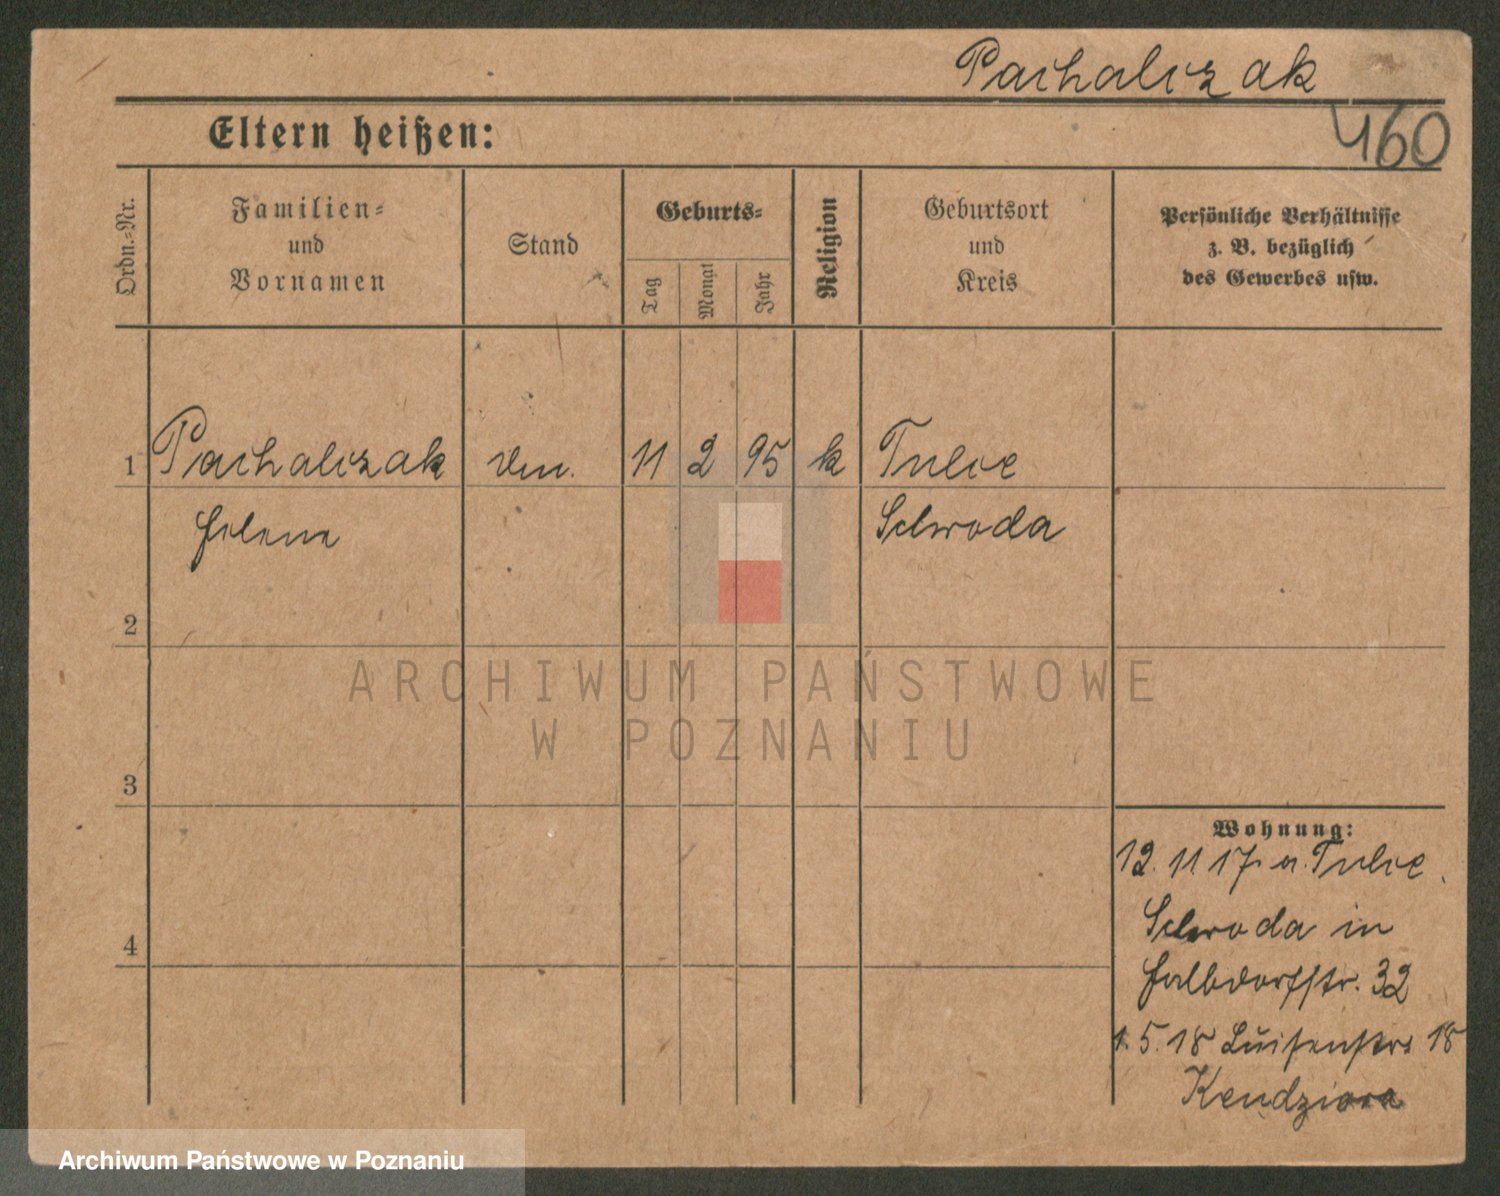 Pachalczak
460
Eltern heißen:
Ordn.=Nr.
Familien=
und
Vornamen
Stand
Geburts=
Tag
Monat
Jahr
Religion
Geburtsort
und
Kreis
Persönliche Verhältnisse
z. B. bezüglich
des Gewerbes usw.
1 Pachalczak 11 2 95 k Tulce
Helene Schroda
2
3
4
Wohnung:
12. 11 17. a. Tulce
Schroda in
Halbdorfstr. 32
1. 5. 18 Luisenstr. 18
Kendziora
ARCHIWUM PAŃSTWOWE
W POZNANIU
Archiwum Państwowe w Poznaniu